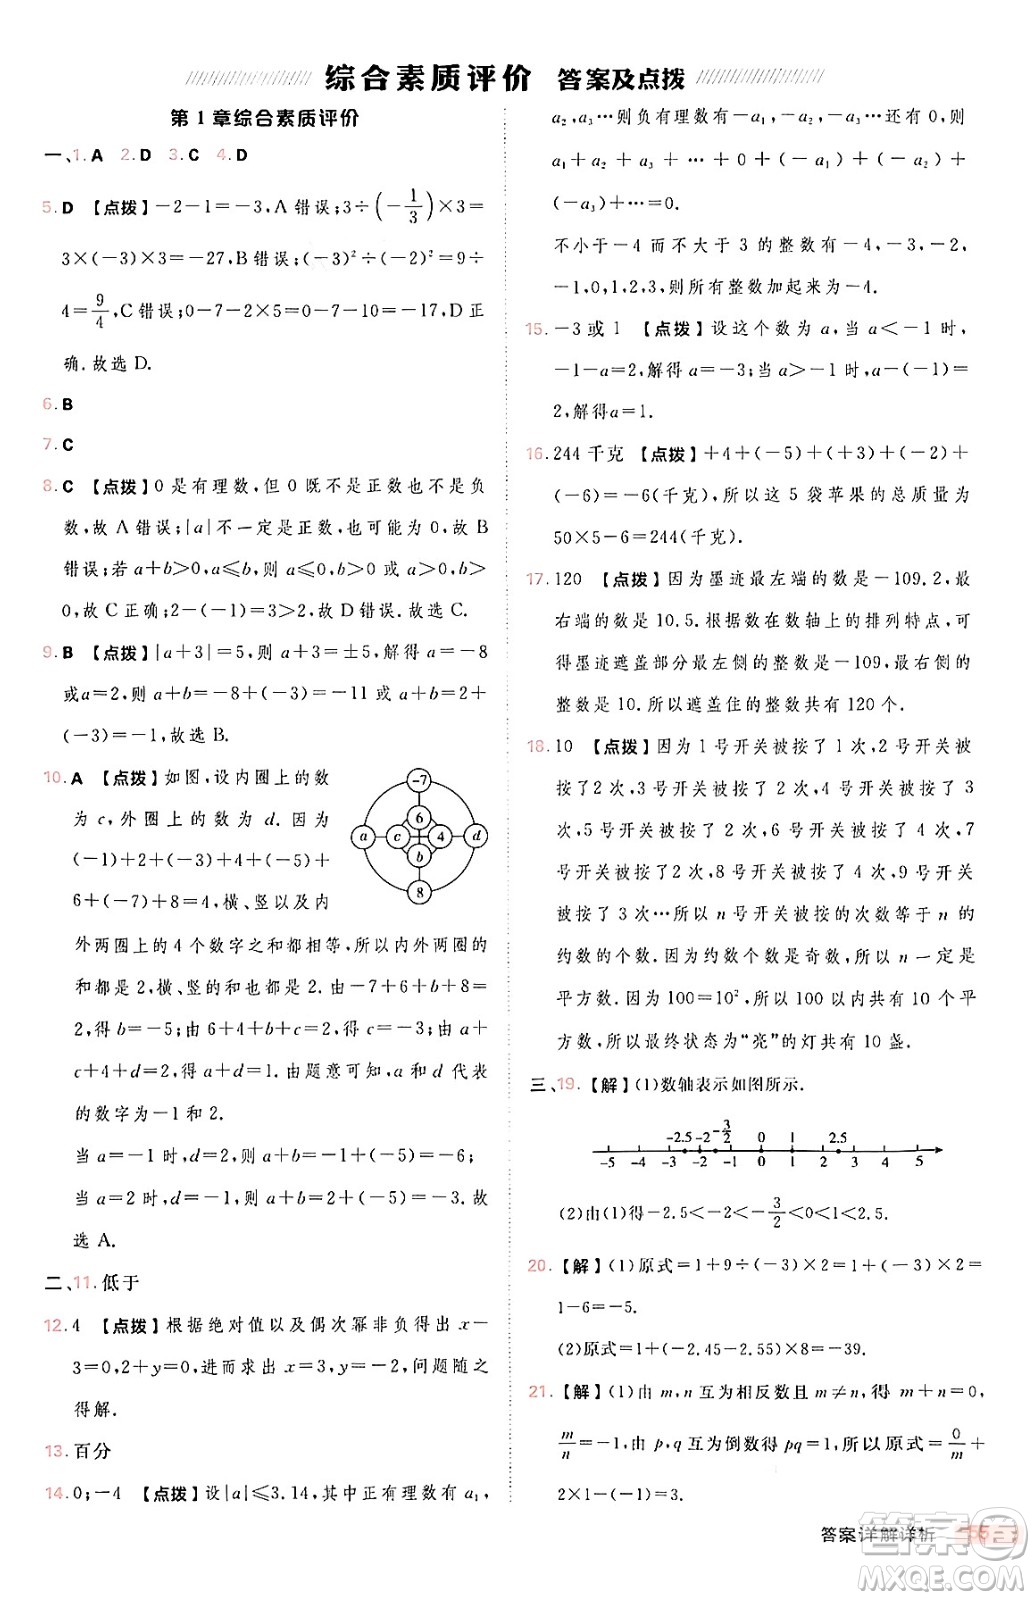 综合素质评价 答案及点拨
第 1 章综合素质评价
一、1. A 2. D 3. C 4. D
5. D 【点拨】-2-1=-3,A 错误;3÷(-1/3)×3=
3×(-3)×3=-27,B 错误;(-3)²÷(-2)²=9÷
4=9/4,C 错误;0-7-2×5=0-7-10=-17,D 正
确.故选 D.
6. B
7. C
8. C 【点拨】0 是有理数,但 0 既不是正数也不是负
数,故 A 错误;|a|不一定是正数,可能为 0,故 B
错误;若 a+b>0,a≤b,则 a≤0,b>0 或 a>0,b>
0,故 C 正确;2-(-1)=3>2,故 D 错误.故选 C.
9. B 【点拨】|a+3|=5,则 a+3=±5,解得 a=-8
或a=2,则 a+b=-8+(-3)=-11 或 a+b=2+
(-3)=-1,故选 B.
10. A 【点拨】如图,设内圈上的数
为 c,外圈上的数为 d.因为
(-1)+2+(-3)+4+(-5)+
6+(-7)+8=4,横、竖以及内
外两圈上的 4 个数字之和都相等,所以内外两圈的
和都是 2,横、竖的和也是 2,则 -7+6+b+8=
2,得 b=-5,由 6+4+b+c=2,得 c=-3,由 a+
c+4+d=2,得 a+d=1.由题意可知,a 和 d 代表
的数字为-1 和 2.
当 a=-1 时,d=2,则 a+b=-1-5=-6;
当 a=2 时,d=-1,则 a+b=2-5=-3.故
选 A.
-7
6
a
c
4
d
b
8
二、11. 低于
12. 4 【点拨】根据绝对值以及偶次幂非负得出 x-
3=0,2+y=0,进而求出 x=3,y=-2,问题随之
得解.
13. 百分
14. 0;-4 【点拨】设|a|≤3.14,其中正有理数有 a₁,
a₂,a₃…则负有理数有-a₁,-a₂,-a₃…还有 0,则
a₁+a₂+a₃+…+0+(-a₁)+(-a₂)+
(-a₃)+…=0.
不小于-4 而不大于 3 的整数有-4,-3,-2,
-1,0,1,2,3,则所有整数加起来为-4.
15. -3 或 1 【点拨】设这个数为 a,当 a<-1 时,
-1-a=2,解得 a=-3;当 a>-1 时,a-(-1)=
2,解得a=1.
16. 244 千克 【点拨】+4+(-5)+(+3)+(-2)+
(-6)=-6(千克),所以这 5 袋苹果的总质量为
50×5-6=244(千克).
17. 120 【点拨】因为墨迹最左端的数是-109.2,最
右端的数是 10.5.根据数在数轴上的排列特点,可
得墨迹遮盖部分最左侧的整数是-109,最右侧的
整数是 10.所以遮盖住的整数共有 120 个.
18. 10 【点拨】因为 1 号开关被按了 1 次,2 号开关被
按了2 次,3 号开关被按了 2 次,4 号开关被按了 3
次,5 号开关被按了 2 次,6 号开关被按了 4 次,7
号开关被按了 2 次,8 号开关被按了 4 次,9 号开关
被按了 3 次…所以 n 号开关被按的次数等于 n 的
约数的个数.因为约数个数是奇数,所以 n 一定是
平方数.因为 100=10²,所以 100 以内共有 10 个平
方数.所以最终状态为“亮”的灯共有 10 盏.
三、19. 【解】(1)数轴表示如图所示.
-2.5 -2 -3/2 0 1 2.5
-5 -4 -3 -2 -1 0 1 2 3 4 5
(2)由(1)得-2.5<-2<-3/2<0<1<2.5.
20. 【解】(1)原式=1+9÷(-3)×2=1+(-3)×2=
1-6=-5.
(2)原式=1+(-2.45-2.55)×8=-39.
21. 【解】(1)由 m,n 互为相反数且 m≠n,得 m+n=0,
m/n=-1,由 p,q 互为倒数得 pq=1,所以原式=0/m+
2×1-(-1)=3.
答案详解详析
答案圈